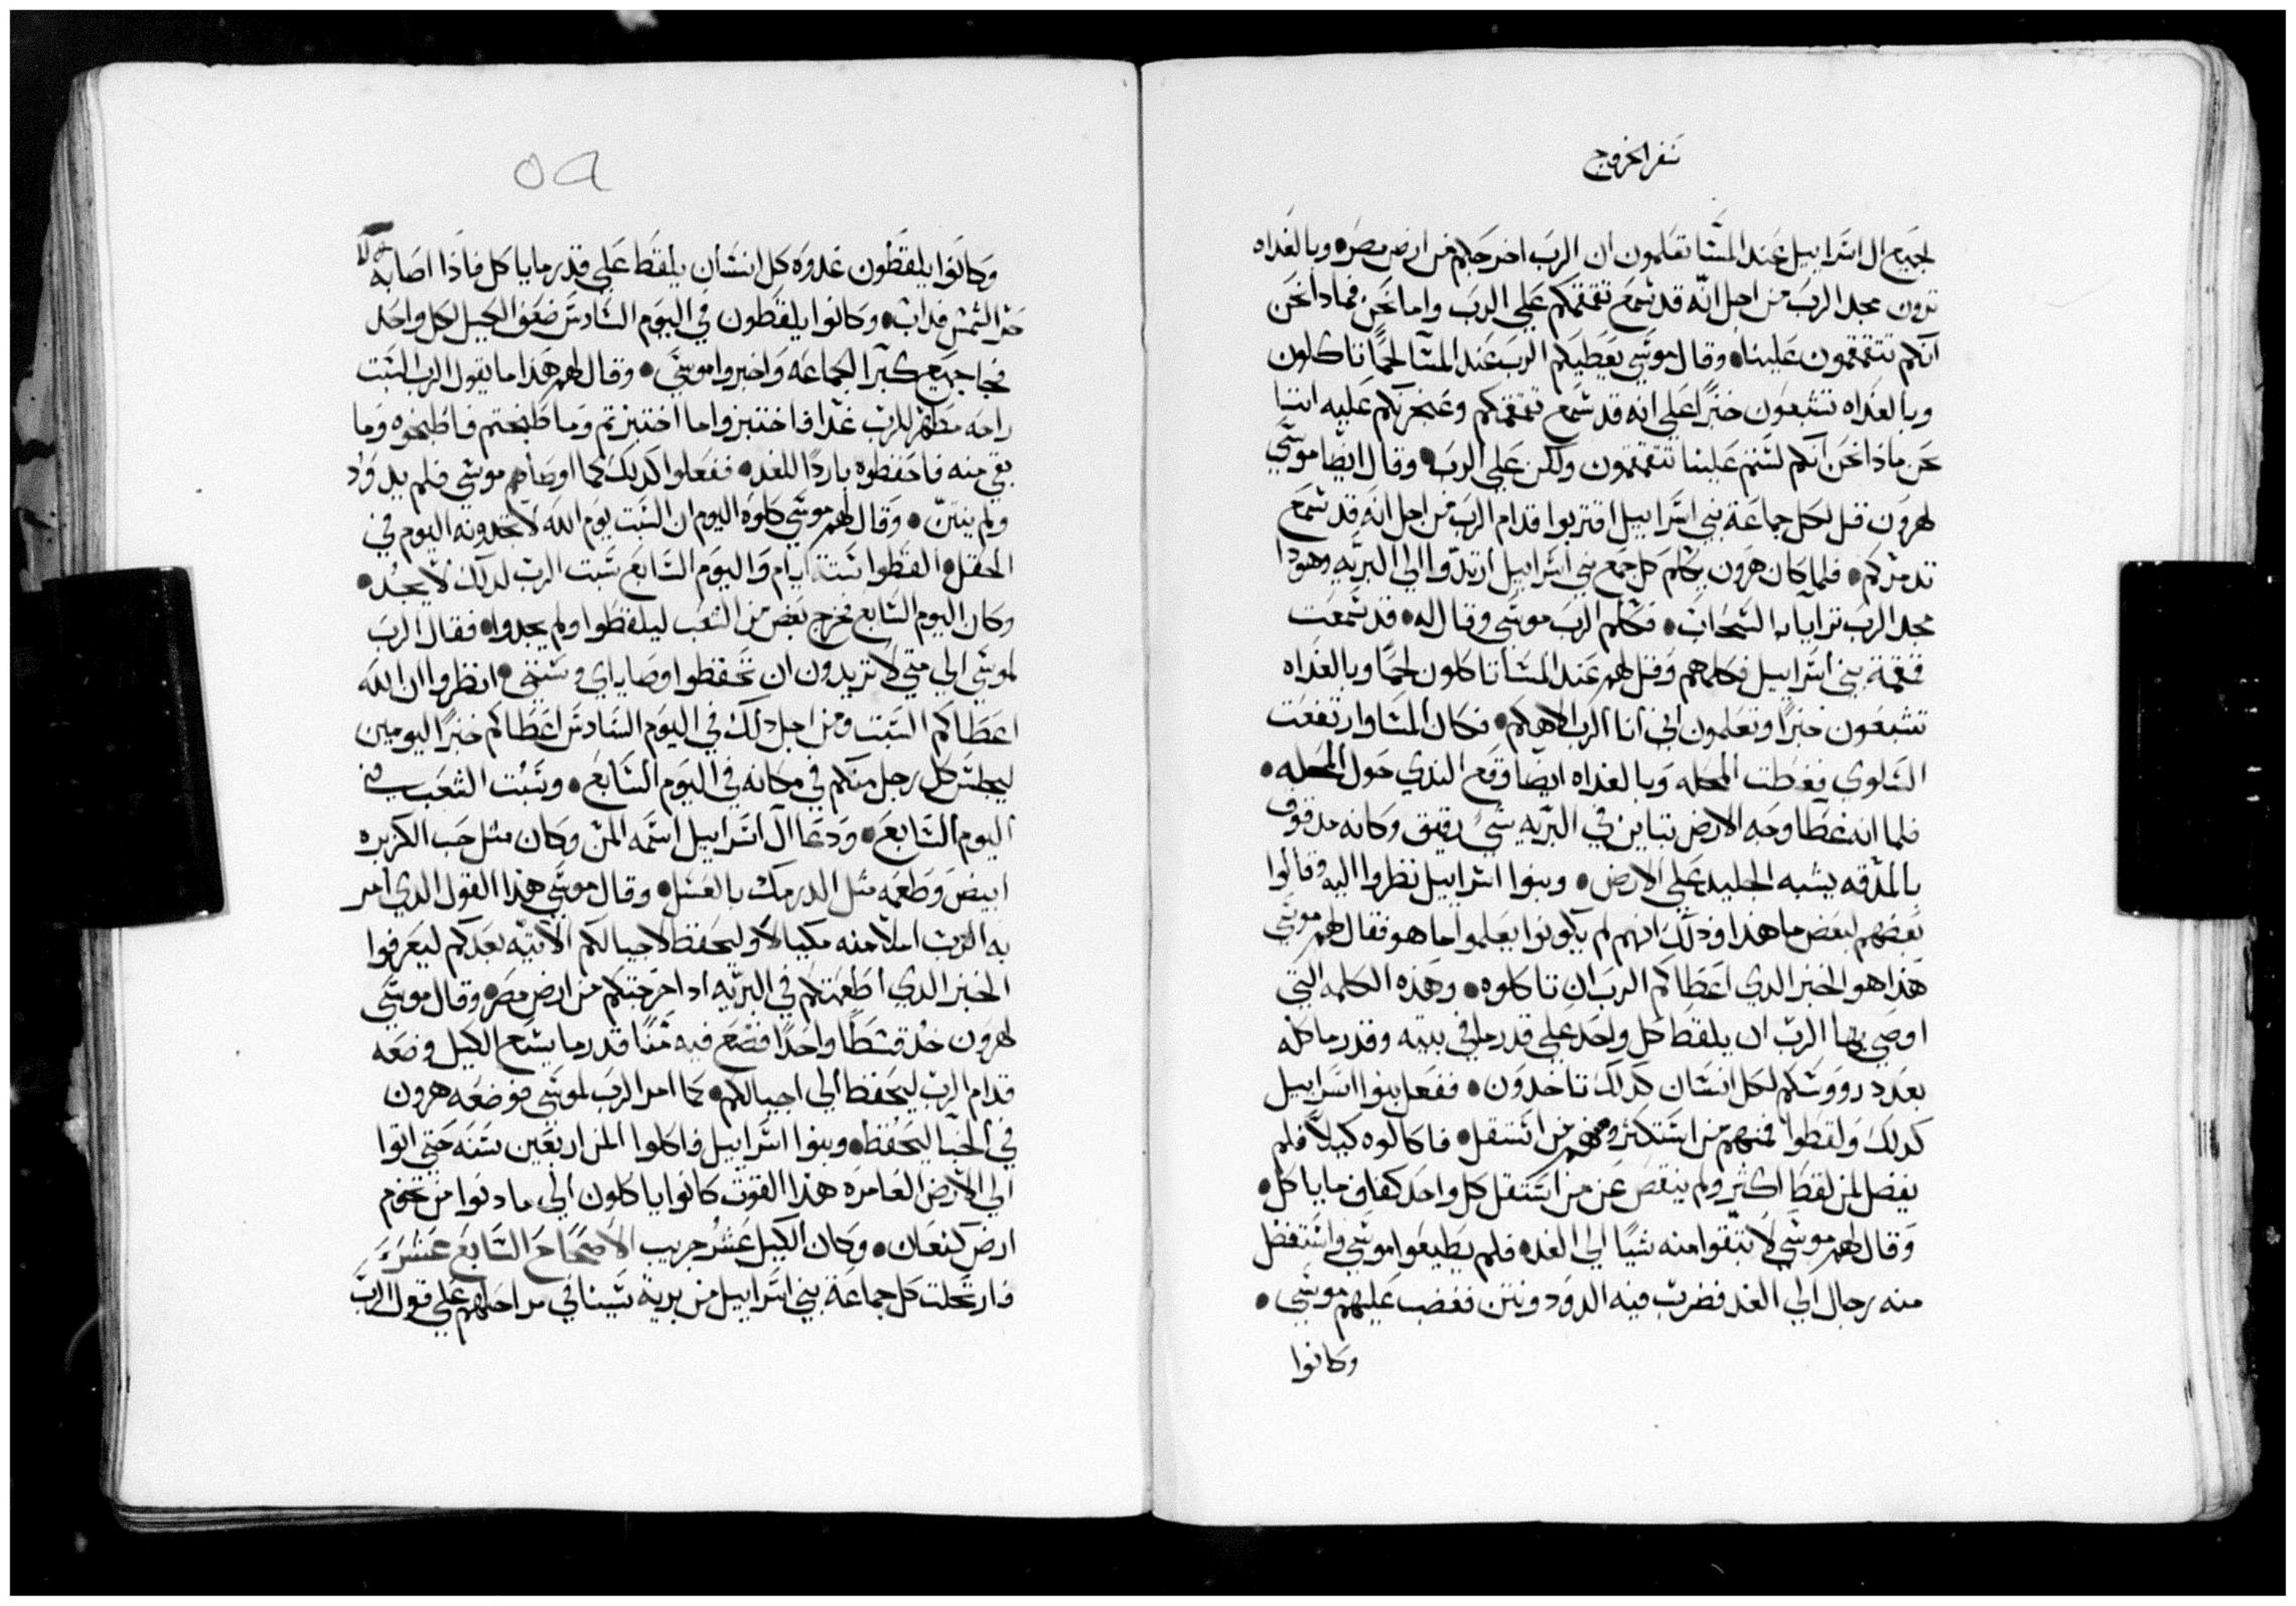 سفر الخروج
لجميع ال اسراييل عند المسا تعلمون ان الرب اخرجكم من ارض مصر • وبالغداه
ترون مجد الرب من اجل انه قد سمع تقمقمكم علي الرب واما نحن فماذا نحن
انكم تتقمقمون علينا • وقال موسي يعطيكم الرب عند المسا لحمًا تاكلون
وبالغداه تشبعون خبزًا علي انه قد سمع تقمقمكم عليه اننا
نحن ماذا نحن انكم لستم علينا تتقمقمون ولكن علي الرب • وقال ايضا موسي
لهرون قل لكل جماعة بني اسراييل اقتربوا قدام الرب من اجل انه قد سمع
تدمركم • فلما كان هرون يكلم كل جمع بني اسراييل ارتدوا الي البريه وهوذا
مجد الرب ترايا السحاب • فكلم الرب موسي وقال له • قد سمعت
قمقمة بني اسراييل فكلمهم وقل لهم عند المسا تاكلون لحمًا وبالغداه
تشبعون خبزًا وتعلمون اني انا الرب الاهكم • فكان المسا وارتفعت
السلوي فغطت المحله وبالغداه ايضا وقع الندي حول المحله •
فلما انه غطا وجه الارض تباين في البريه شي رقيق وكانه مدقوق
بالمدقه يشبه الجليد علي الارض • وبنوا اسراييل نظروا اليه وقالوا
بعضهم لبعض ما هذا وذلك انهم لم يكونوا يعلموا ما هو فقال لهم موسي
هذا هو الخبز الدي اعطاكم الرب ان تاكلوه • وهذه الكلمه التي
اوصي بها الرب ان يلقط كل واحد علي قدر ما في بيته وقدر ماكله
بعدد رووسكم لكل انسان كدلك تاخدون • ففعل بنوا اسراييل
كدلك ولقطوا فمنهم من استكثر ومنهم من استقل • فاكالوه كيلاً فلم
يفضل لمن لقط اكثر ولم ينقص عن من استقل كل واحد كفاف ما ياكل •
وقال لهم موسي لا تبقوا منه شيًا الي الغد • فلم يطيعوا موسي واستفضل
منه رجال الي الغد فضرب فيه الدود ونتن فغضب عليهم موسي •
وكانوا
٥٩
وكانوا يلقطون غدوه كل انسان يلقط علي قدر ما ياكل فاذا اصابه
حر الشمس فداب • وكانوا يلقطون في اليوم السادس ضعف الكيل لكل واحد
فجا جميع كبرا الجماعه واخبروا موسي • وقال لهم هذا ما يقول الرب السبت
راحه مطهر للرب غدا فاختبزوا ما اختبزتم وما طبختم فاطبخوه وما
بقي منه فاحفظوه باردًا للغد • ففعلوا كدلك كما اوصاهم موسي فلم يدود
ولم ينتن • وقال لهم موسي كلوه اليوم ان السبت يوم الله لا تجدونه اليوم في
الحقل • القطوا ستة ايام واليوم السابع سبت الرب لدلك لا يجد •
وكان اليوم السابع فخرج بعض من الشعب ليلقطوا ولم يجدوا • فقال الرب
لموسي الي متي لا تريدون ان تحفظوا وصاياي وسنني • انظروا ان الله
اعطاكم السبت ومن اجل دلك في اليوم السادس اعطاكم خبز اليومين
ليجلس كل رجل منكم في مكانه في اليوم السابع • وسبت الشعب في
اليوم السابع • ودعا ال اسراييل اسمه المن وكان مثل حب الكزبره
ابيض وطعمه مثل الدرمك بالعسل • وقال موسي هذا القول الدي امر
به الرب املا منه مكيالاً وليحفظ لاجيالكم الاتيه بعدكم ليعرفوا
الخبز الدي اطعمتكم في البريه اد اخرجتكم من ارض مصر • وقال موسي
لهرون خد قسطًا واحدًا فضع فيه منًا قدر ما يسع الكيل وضعه
قدام الرب ليحفظ الي اجيالكم • كما امر الرب لموسي فوضعه هرون
في الخبا ليحفظ • وبنوا اسراييل فاكلوا المن اربعين سنه حتي اتوا
الي الارض العامره هذا القوت كانوا ياكلون الي ما دنوا من تخوم
ارض كنعان • وكان الكيل عشر جريب الاصحاح السابع عشر
فارتحلت كل جماعة بني اسراييل من برية سينا في مراحلهم علي قول الرب